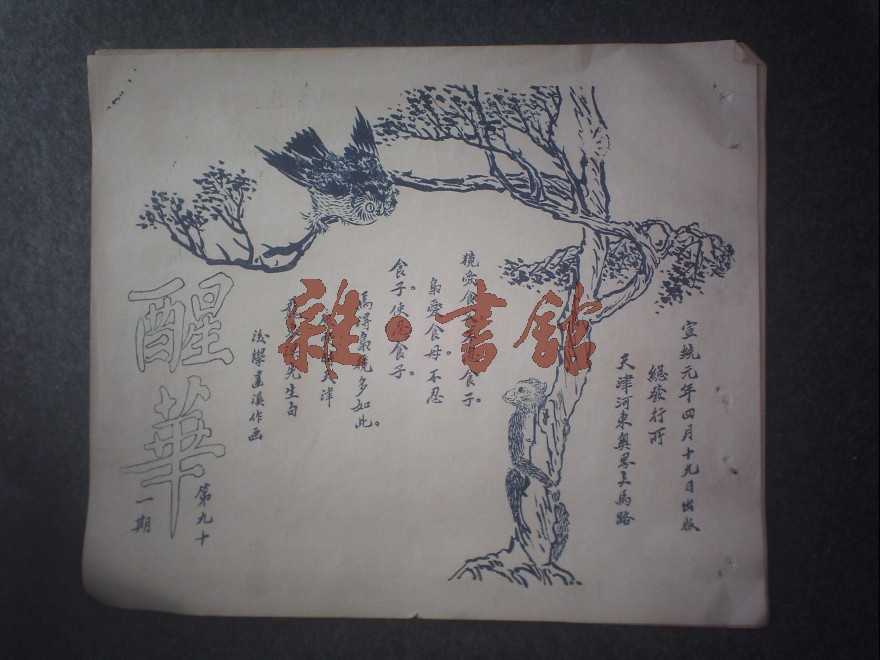 宣統元年四月十九日出版
總發行所
天津河東奧界大馬路
獍愛食 食子。
梟愛食母。不忍
食子。使 食子。
焉得梟獍多如此。
天津
先生白
後學 溪作画
醒華
第九十
一期
雜·書館